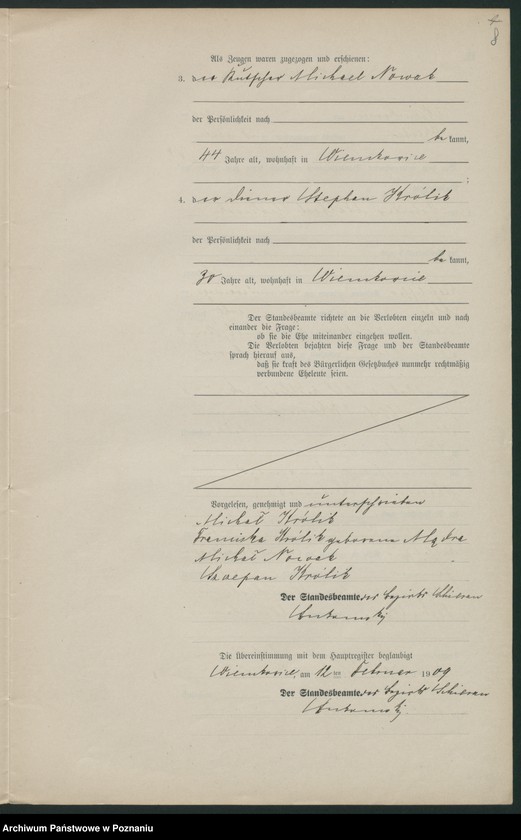 8
Als Zeugen waren zugezogen und erschienen:
3. der Kutscher Michael Nowak
der Persönlichkeit nach
be kannt,
44 Jahre alt, wohnhaft in Wiemkowice
;
4. der Diener Stephan Królik
der Persönlichkeit nach
be kannt,
30 Jahre alt, wohnhaft in Wiemkowice
Der Standesbeamte richtete an die Verlobten einzeln und nach
einander die Frage:
ob sie die Ehe miteinander eingehen wollen.
Die Verlobten bejahten diese Frage und der Standesbeamte
sprach hierauf aus,
daß sie kraft des Bürgerlichen Gesetzbuches nunmehr rechtmäßig
verbundene Eheleute seien.
Vorgelesen, genehmigt und unterschrieben
Michał Królik
Franciska Królik geborene Mądra
Michał Nowak
Szczepan Królik
Der Standesbeamte des Bezirks
Die Übereinstimmung mit dem Hauptregister beglaubigt
Wiemkowice, am 12 ten Februar 1909
Der Standesbeamte des Bezirks
Archiwum Państwowe w Poznaniu